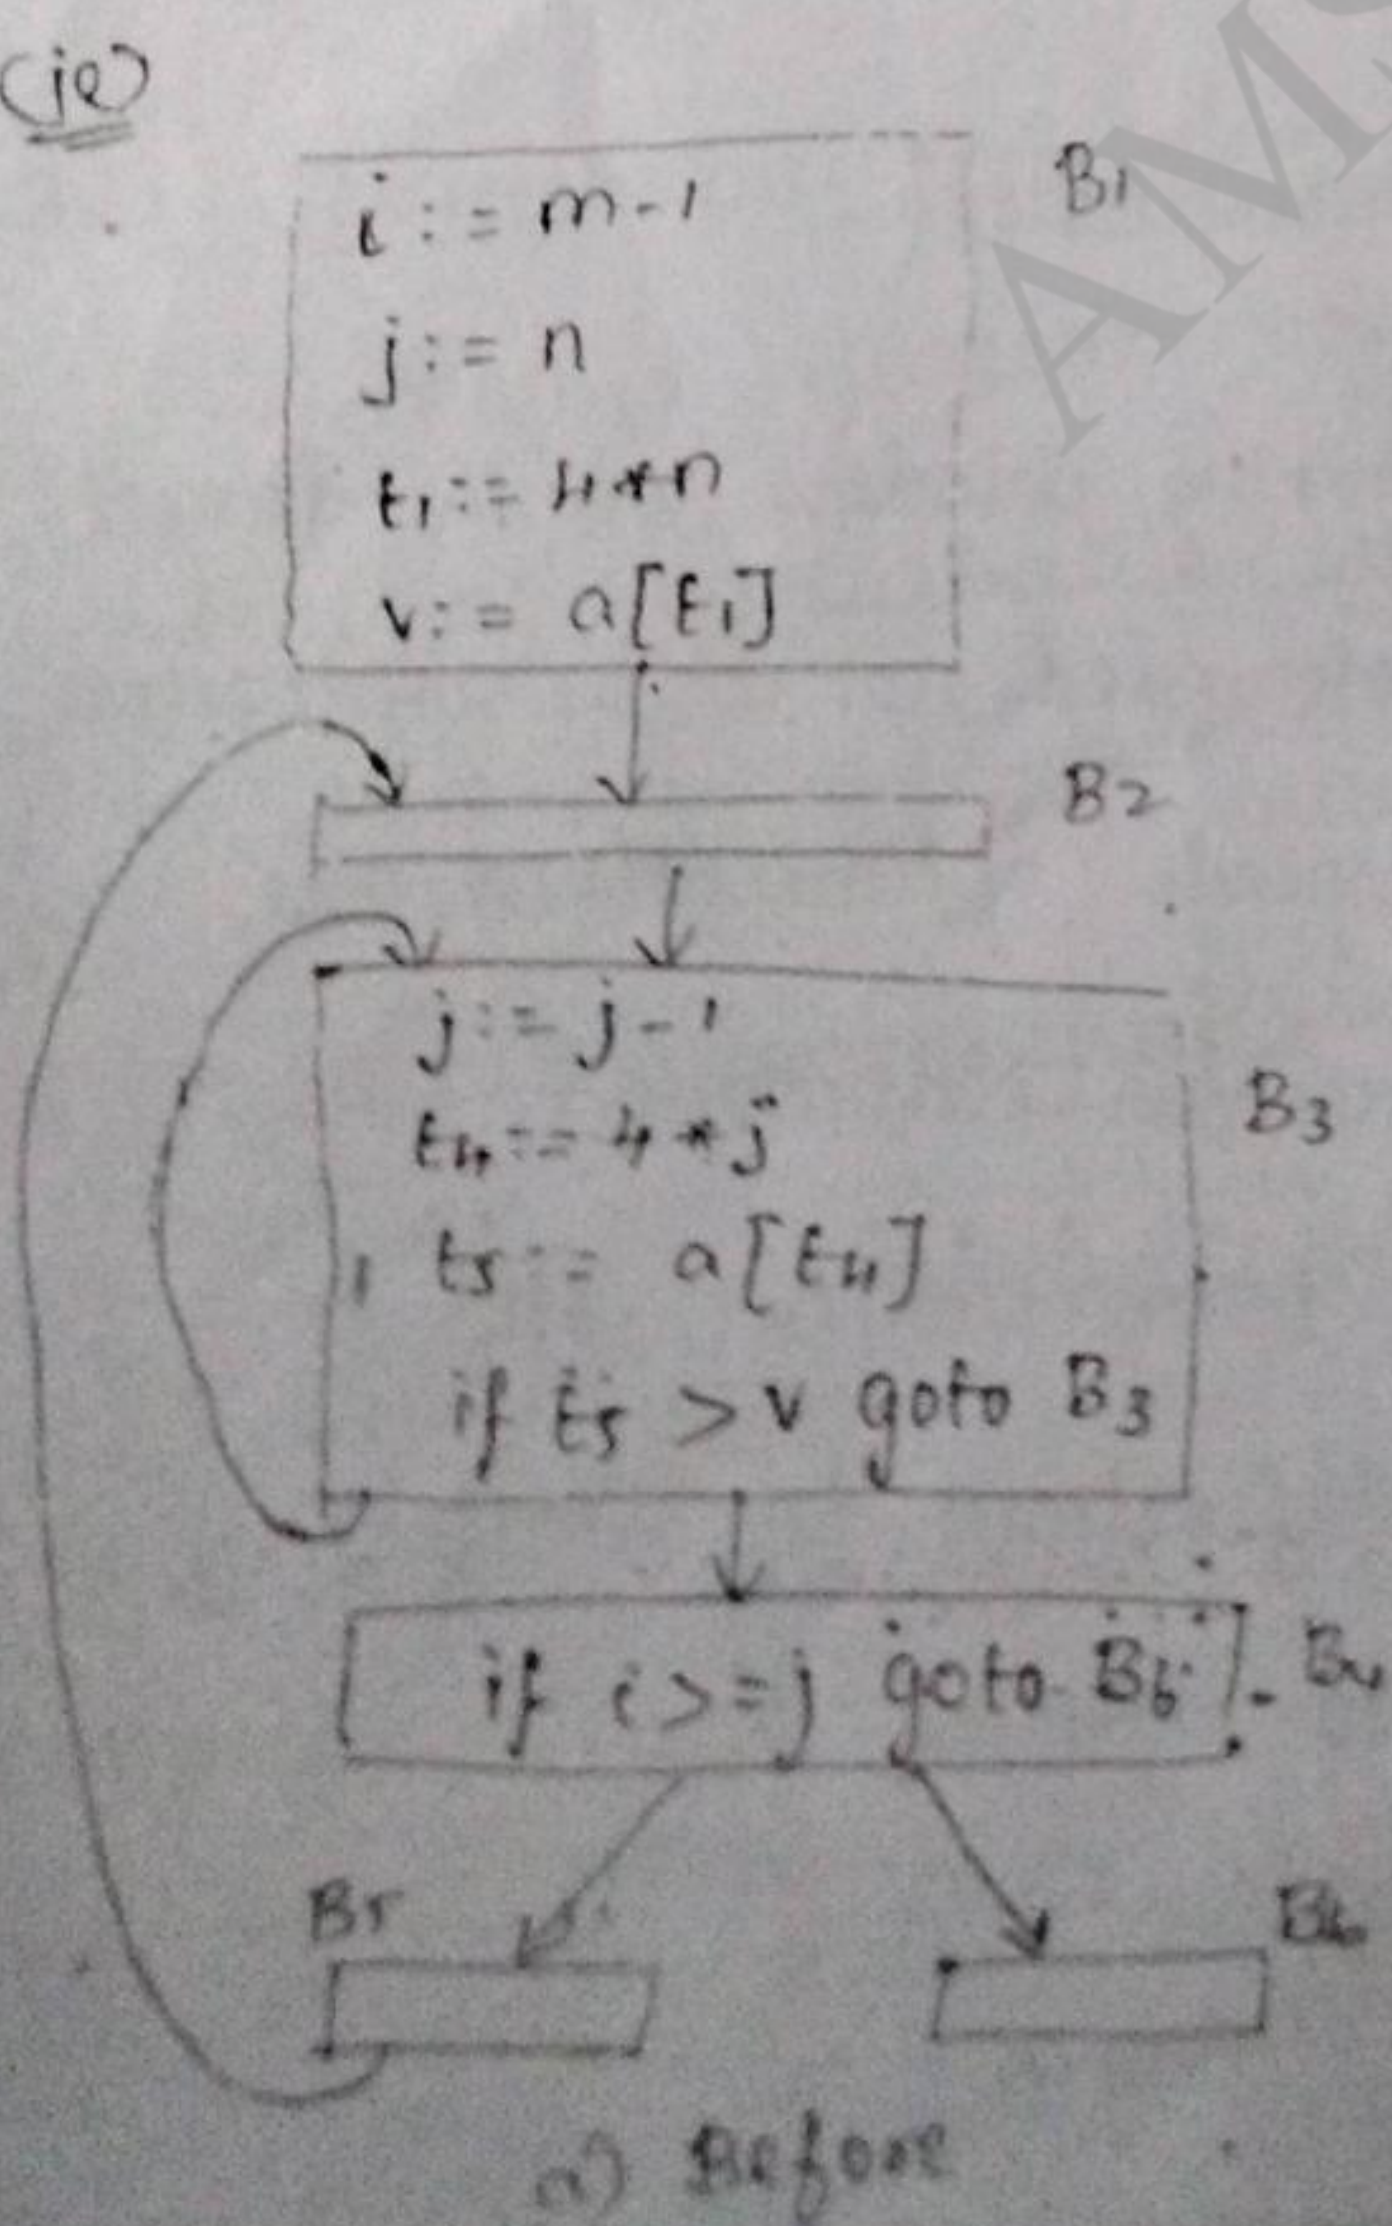 (ie)
B1
i := m-1
j := n
t1 := 4*n
v := a[t1]
B2
j := j-1
t4 := 4*j
B3
t5 := a[t4]
if t5 > v goto B3
if i >= j goto B6
B4
B5
B6
a) Before
AMS